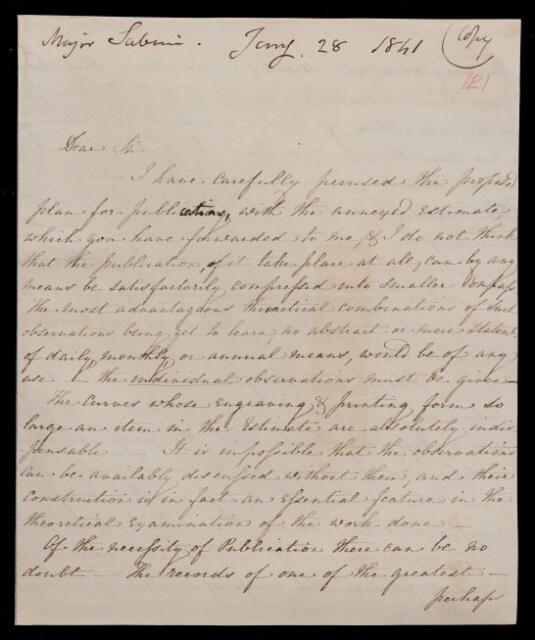 Major Sabine. Jany. 28 1841 Copy
121
Dear Sir
I have carefully perused the proposed
plan for publications, with the annexed Estimate,
which you have forwarded to me, & I do not think
that the publication, if it take place at all, can by any
means be satisfactorily compressed into smaller compass
The most advantageous theoretical combinations of such
observations being yet to learn, no abstract or mere statemt
of daily, monthly or annual means, would be of any
use. the individual observations must be given —
The Curves whose engraving & printing form so
large an item in the Estimate are absolutely indis
pensable — It is impossible that the observations
can be availably discussed without them, and their
construction is in fact an essential feature in the
theoretical examination of the work done —
Of the necessity of Publication there can be no
doubt — The records of one of the greatest —
perhaps